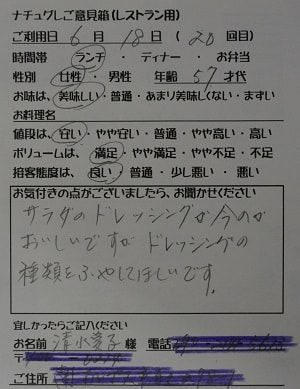 ナチュグしご意見箱(レストラン用)
ご利用日 6 月 18 日 ( 20 回目)
時間帯 ランチ ・ ディナー ・ お弁当
性別 女性 ・ 男性 年齢 57 才代
お味は、美味しい・普通・あまり美味しくない・まずい
お料理名
値段は、安い・やや安い・普通・やや高い・高い
ボリュームは、満足・やや満足・やや不足・不足
接客態度は、良い・普通・少し悪い・悪い
お気付きの点がございましたら、お聞かせください
サラダのドレッシングが今のが
おいしいですがドレッシングの
種類をふやしてほしいです。
宜しかったらご記入ください
お名前 清水 子 様 電話
〒
ご住所